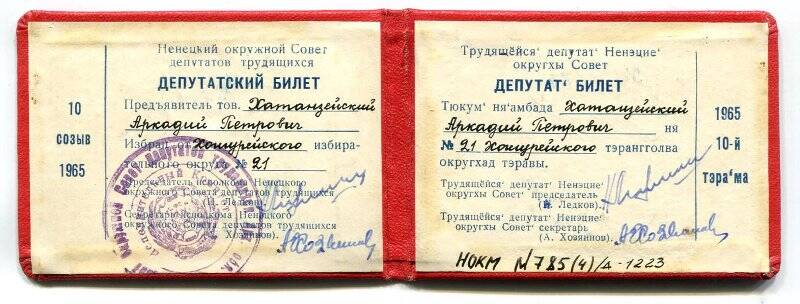 Ненецкий окружной Совет
депутатов трудящихся
ДЕПУТАТСКИЙ БИЛЕТ
10
созыв
1965
Предъявитель тов. Хатанзейский
Аркадий Петрович
Избран от Хонгурейского избира-
тельного округа № 21
Председатель исполкома Ненецкого
окружного Совета депутатов трудящихся
Ледков.)
Секретарь исполкома Ненецкого
окружного Совета депутатов трудящихся
Хозяинов)
Трудящёйся' депутат' Ненэцие'
округхы Совет
ДЕПУТАТ' БИЛЕТ
Тюкум' ня'амбада Хатанзейский
Аркадий Петрович ня
№ 21 Хонгурейского тэрангголва
округхад тэравы.
1965
10-й
тэра'ма
Трудящёйся' депутат' Ненэцие'
округхы Совет' председатель
(И. Ледков.)
Трудящёйся' депутат' Ненэцие'
округхы Совет' секретарь
(А. Хозяинов)
НОКМ №785(4)/Д-1223